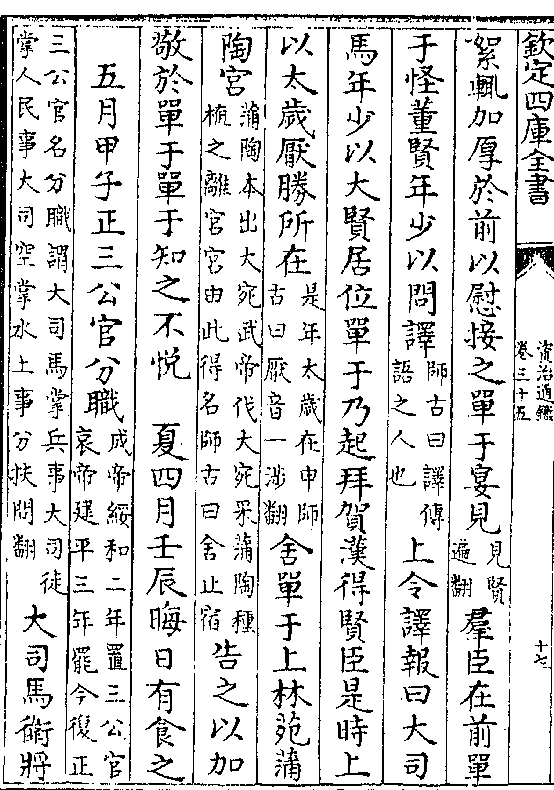 欽定四庫全書
資治通鑑
卷三十五
十七
絮輒加厚於前以慰接之單于宴見見賢遍翻羣臣在前單
于怪董賢年少以問譯師古曰譯傳語之人也上令譯報曰大司
馬年少以大賢居位單于乃起拜賀漢得賢臣是時上
以太歲厭勝所在是年太歲在申師古曰厭音一涉翻舍單于上林苑蒲
陶宮蒲陶本出大宛武帝伐大宛采蒲陶種植之離宮宮由此得名師古曰舍止宿告之以加
敬於單于單于知之不悅 夏四月壬辰晦日有食之
五月甲子正三公官分職成帝綏和二年置三公官哀帝建平三年罷今復正
三公官名分職謂大司馬掌兵事大司徒掌人民事大司空掌水土事分扶問翻大司馬衛將